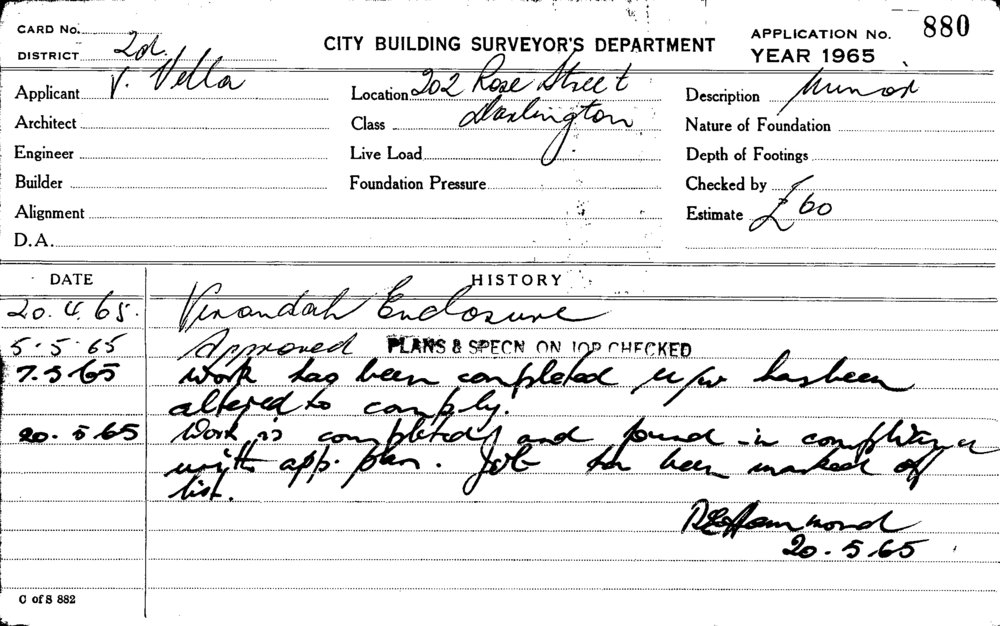 CARD No.
DISTRICT 2d.
CITY BUILDING SURVEYOR'S DEPARTMENT
APPLICATION No. 880
YEAR 1965
Applicant V. Vella
Location 202 Rose Street
Description Minor
Architect
Class Darlington
Nature of Foundation
Engineer
Live Load
Depth of Footings
Builder
Foundation Pressure
Checked by
Alignment
Estimate £60
D.A.
DATE HISTORY
20.4.65. Verandah Enclosure
5.5.65 Approved PLANS & SPECN ON JOB CHECKED
7.5.65 Work has been completed has been
altered to comply.
20.5.65 Work is completed and found in compliance
with app. plan. Job has been marked off
list.
REHammond
20.5.65
C of S 882